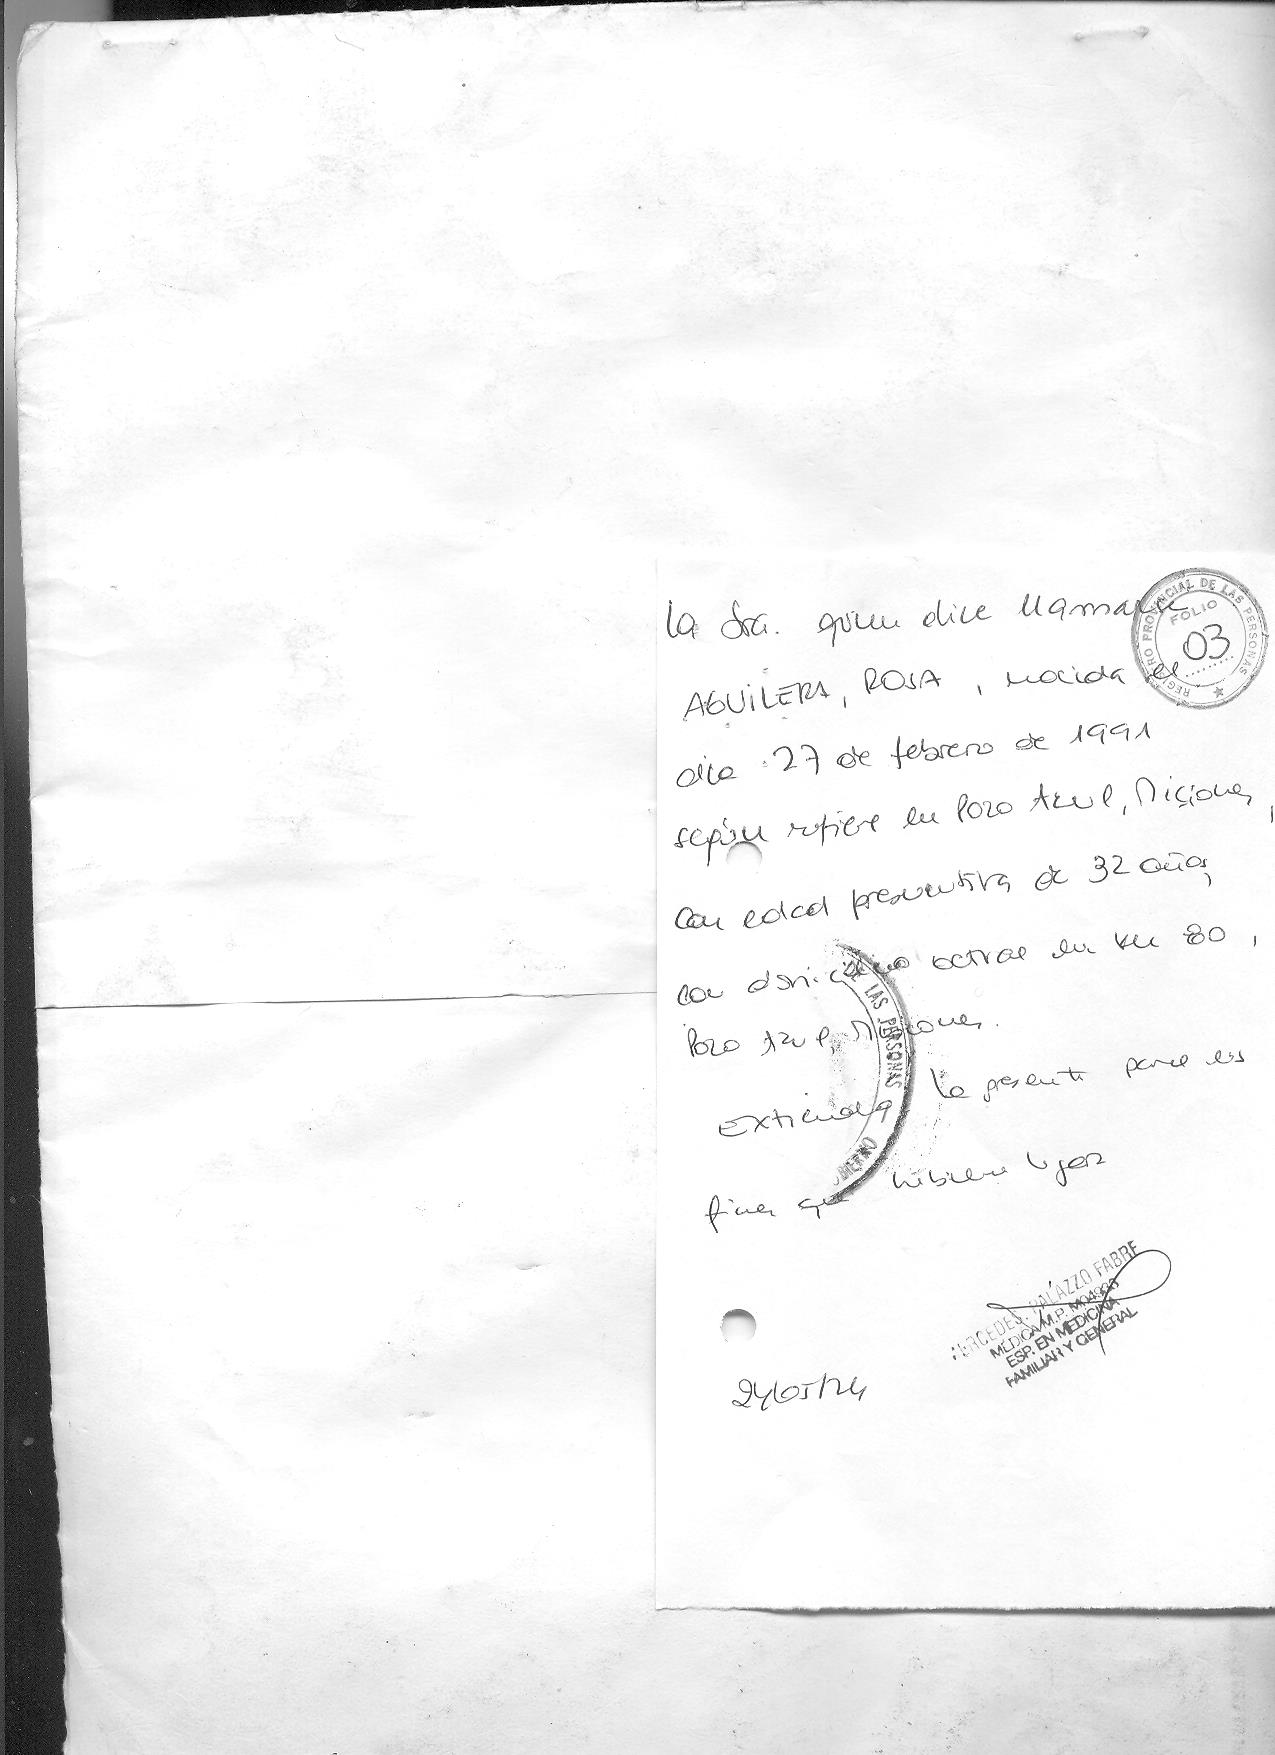 La Sra. quien dice llamarse
REGISTRO PROVINCIAL DE LAS PERSONAS
FOLIO
03
AGUILERA, ROSA, nacida el
día 27 de febrero de 1991
según refiere en Pozo Azul, Misiones,
con edad presuntiva de 32 años,
con domicilio actual en km 80,
Pozo Azul, Misiones.
DE LAS PERSONAS
Extiendo la presente para los
fines que hubiere lugar
PALAZZO FABRE
MEDICA M.P. M04923
ESP. EN MEDICINA
FAMILIAR Y GENERAL
24/05/24